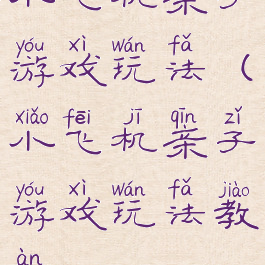 yóu xì wán fǎ
游戏玩法（
xiǎo fēi jī qīn zǐ
小飞机亲子
yóu xì wán fǎ jiào
游戏玩法教
àn